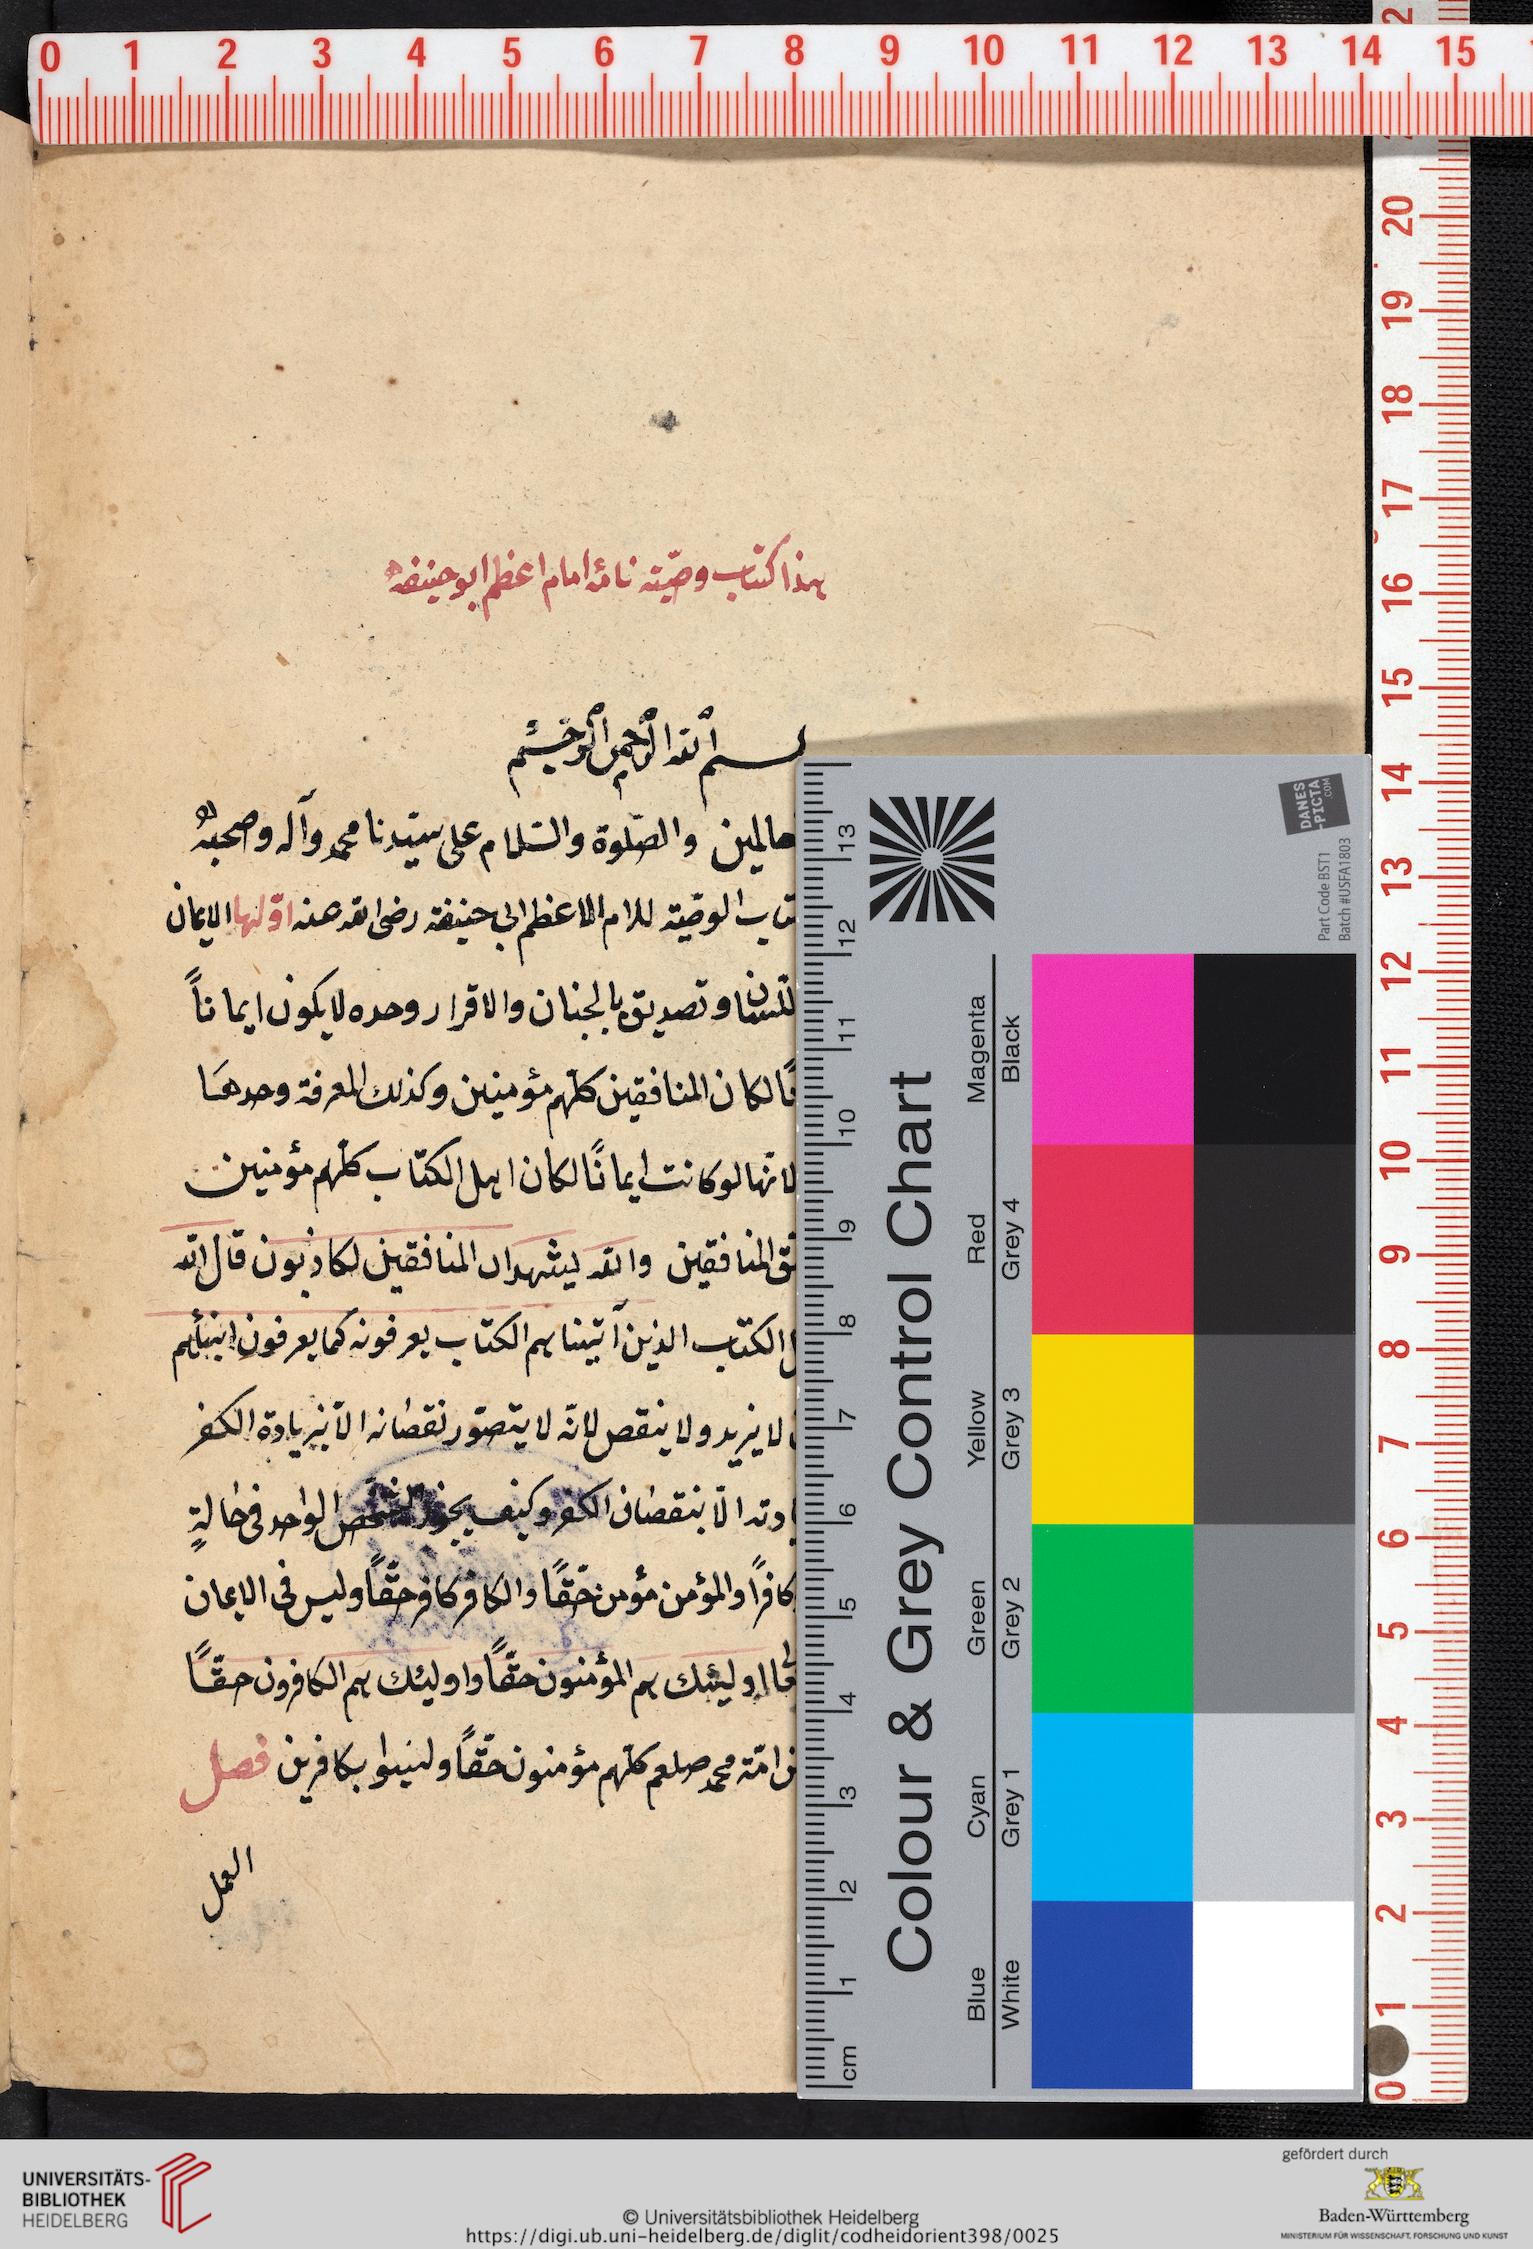 0 1 2 3 4 5 6 7 8 9 10 11 12 13 14 15
هذا كتاب وصيّته نامۀ امام اعظم ابو حنيفه
بسم الله الرحمن الرحيم
عالمين والصّلوة والسّلام على سيّدنا محمد وآله وصحبه
تاب الوصيّة للامام الاعظم ابى حنيفة رضى الله عنه اوّلها الايمان
للّسان وتصديق بالجنان والاقرار وحده لا يكون ايماناً
نًا لكان المنافقين كلّهم مؤمنين وكذلك المعرفة وحدها
لانّها لو كانت ايمانًا لكان اهل الكتاب كلّهم مؤمنين
ق المنافقين والله يشهد ان المنافقين لكاذبون قال الله
ل الكتاب الذين آتيناهم الكتاب يعرفونه كما يعرفون ابنائهم
لا يزيد ولا ينقص لانّه لا يتصوّر نقصانه الّا بزيادة الكفر
ادته الّا بنقصان الكفر وكيف يجوز الشخص الواحد فى حالةٍ
كافراً والمؤمن مؤمن حقّاً والكافر كافر حقّاً وليس فى الايمان
اولئك هم المؤمنون حقّاً واولئك هم الكافرون حقّاً
ن امّة محمد صلعم كلّهم مؤمنون حقّاً وليسوا بكافرين فصل
العمل
DANES
-PICTA
.COM
Part Code BST1
Batch #USFA1803
Colour & Grey Control Chart
Blue Cyan Green Yellow Red Magenta
White Grey 1 Grey 2 Grey 3 Grey 4 Black
cm 1 2 3 4 5 6 7 8 9 10 11 12 13
0 1 2 3 4 5 6 7 8 9 10 11 12 13 14 15 16 17 18 19 20
UNIVERSITÄTS-
BIBLIOTHEK
HEIDELBERG
© Universitätsbibliothek Heidelberg
https://digi.ub.uni-heidelberg.de/diglit/codheidorient398/0025
gefördert durch
Baden-Württemberg
MINISTERIUM FÜR WISSENSCHAFT, FORSCHUNG UND KUNST